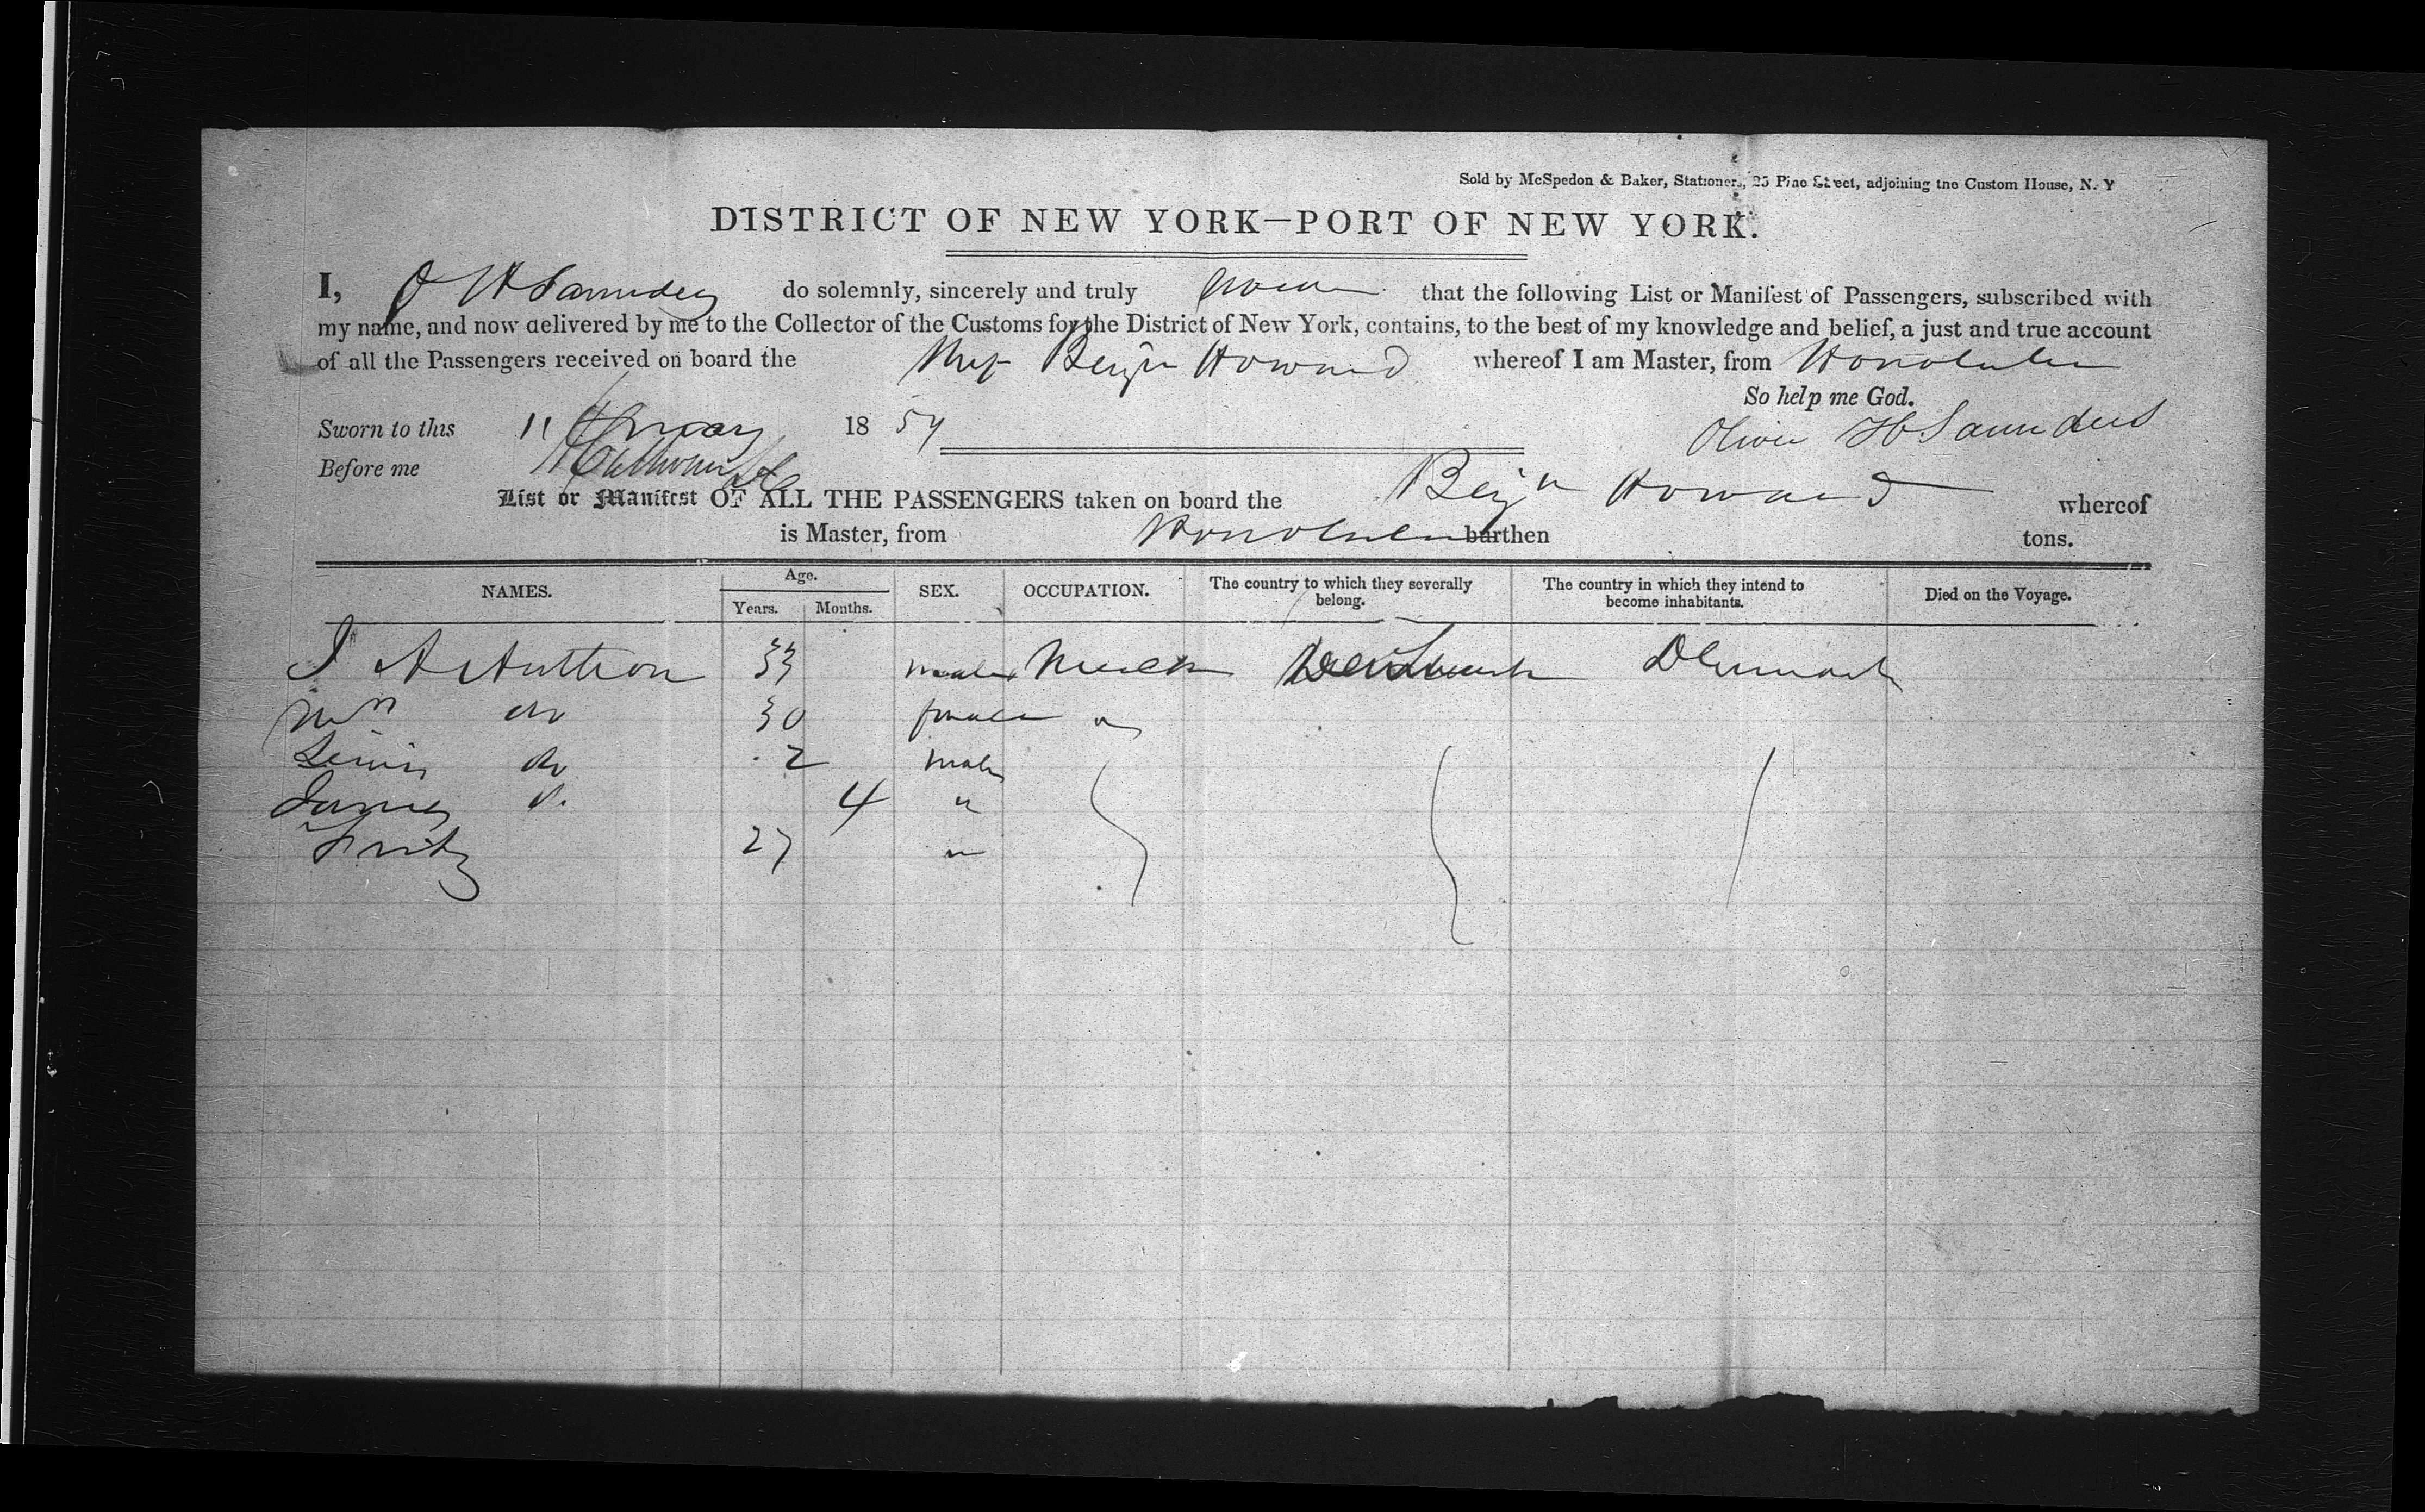 Sold by McSpedon & Baker, Stationers, 25 Pine Street, adjoining the Custom House, N. Y
DISTRICT OF NEW YORK—PORT OF NEW YORK.
I, O H Saunders do solemnly, sincerely and truly swear that the following List or Manifest of Passengers, subscribed with
my name, and now delivered by me to the Collector of the Customs for the District of New York, contains, to the best of my knowledge and belief, a just and true account
of all the Passengers received on board the Ship Benjn Howard whereof I am Master, from Honolulu
So help me God.
Sworn to this 11 18 54 Oliver H Saunders
Before me
List or Manifest OF ALL THE PASSENGERS taken on board the Benjn Howard whereof
is Master, from Honolulu burthen tons.
NAMES. Age. Years. Months. SEX. OCCUPATION. The country to which they severally belong. The country in which they intend to become inhabitants. Died on the Voyage.
J A Anthon 33 male Merch Denmark Denmark
Mrs do 30 female "
Lewis do 2 male
James do 4 "
Fritz 27 "